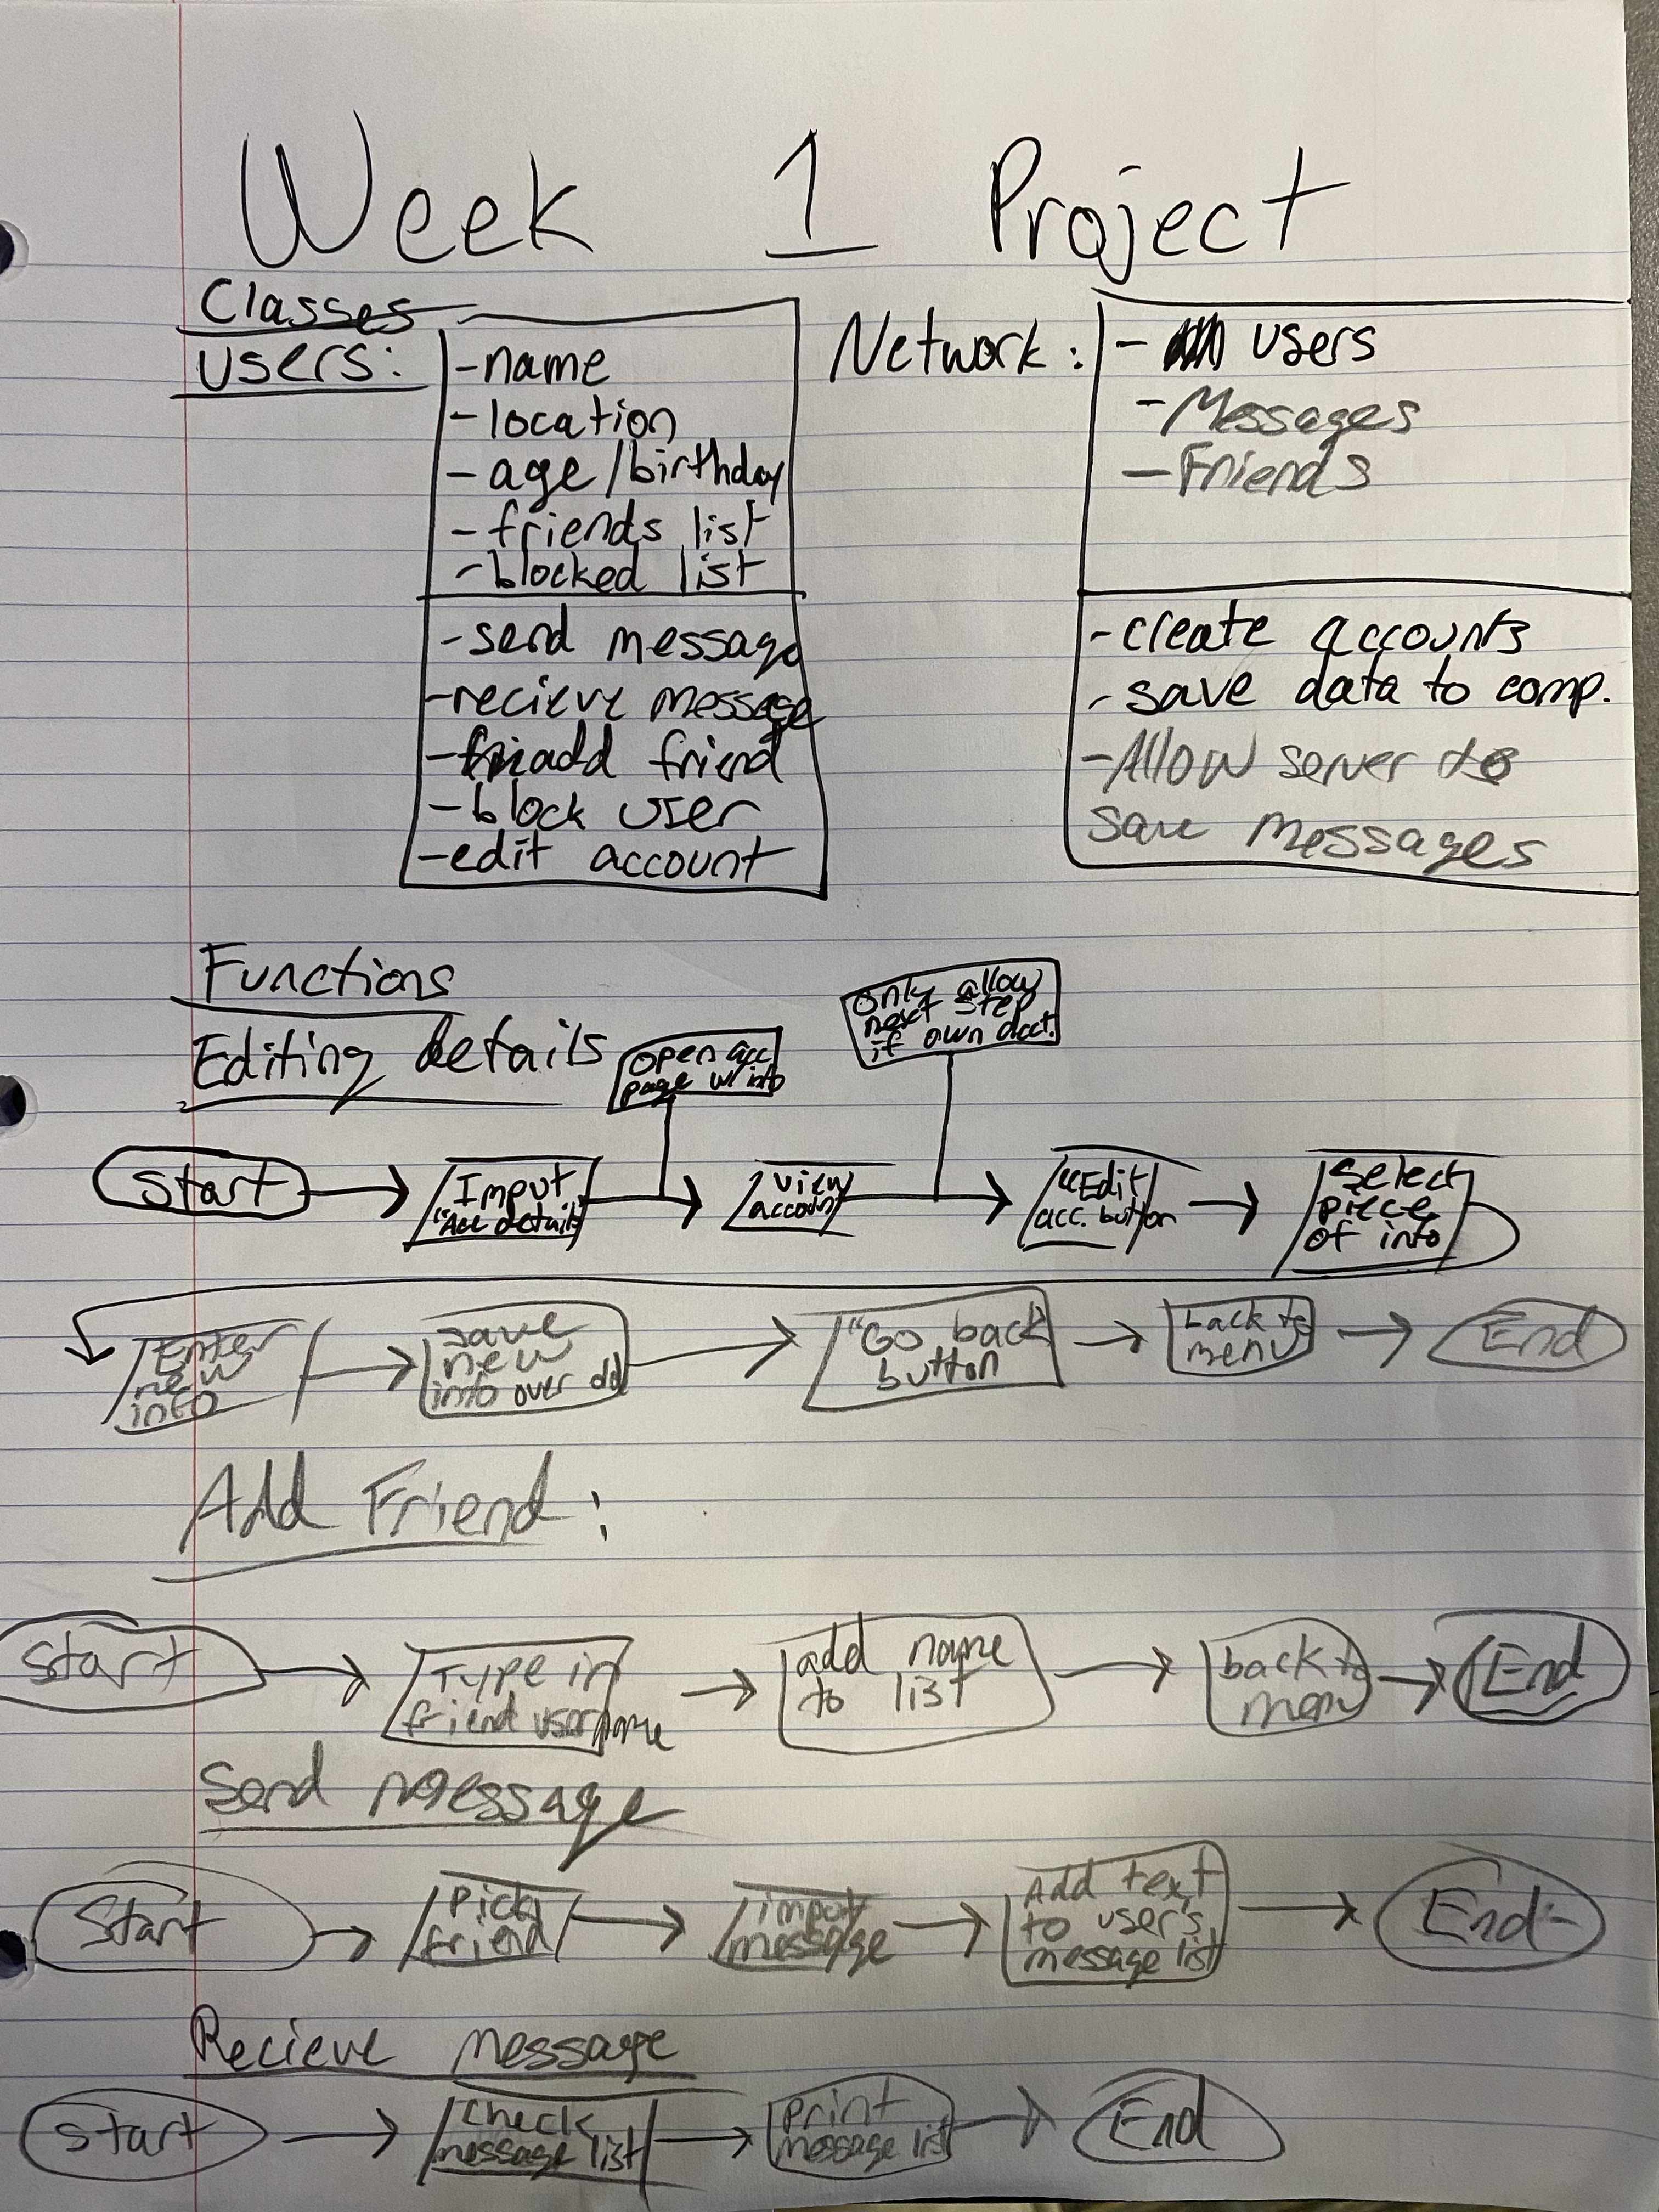 Week 1 Project
Classes
Users:
-name
-location
-age/birthday
-friends list
-blocked list
-send message
-recieve message
-add friend
-block user
-edit account
Network:
- users
-Messages
-Friends
-create accounts
-save data to comp.
-Allow server to
save messages
Functions
Editing details
open acc
page w/ info
only allow
next step
if own acct.
Start
Input
"Acc details"
view
account
"Edit
acc. button
Select
piece
of info
Enter
new
info
save
new
info over old
"Go back
button
back to
menu
End
Add Friend:
Start
Type in
friend username
add name
to list
back to
menu
End
Send message
Start
pick
friend
input
message
Add text
to user's
message list
End
Recieve message
Start
check
message list
print
message list
End